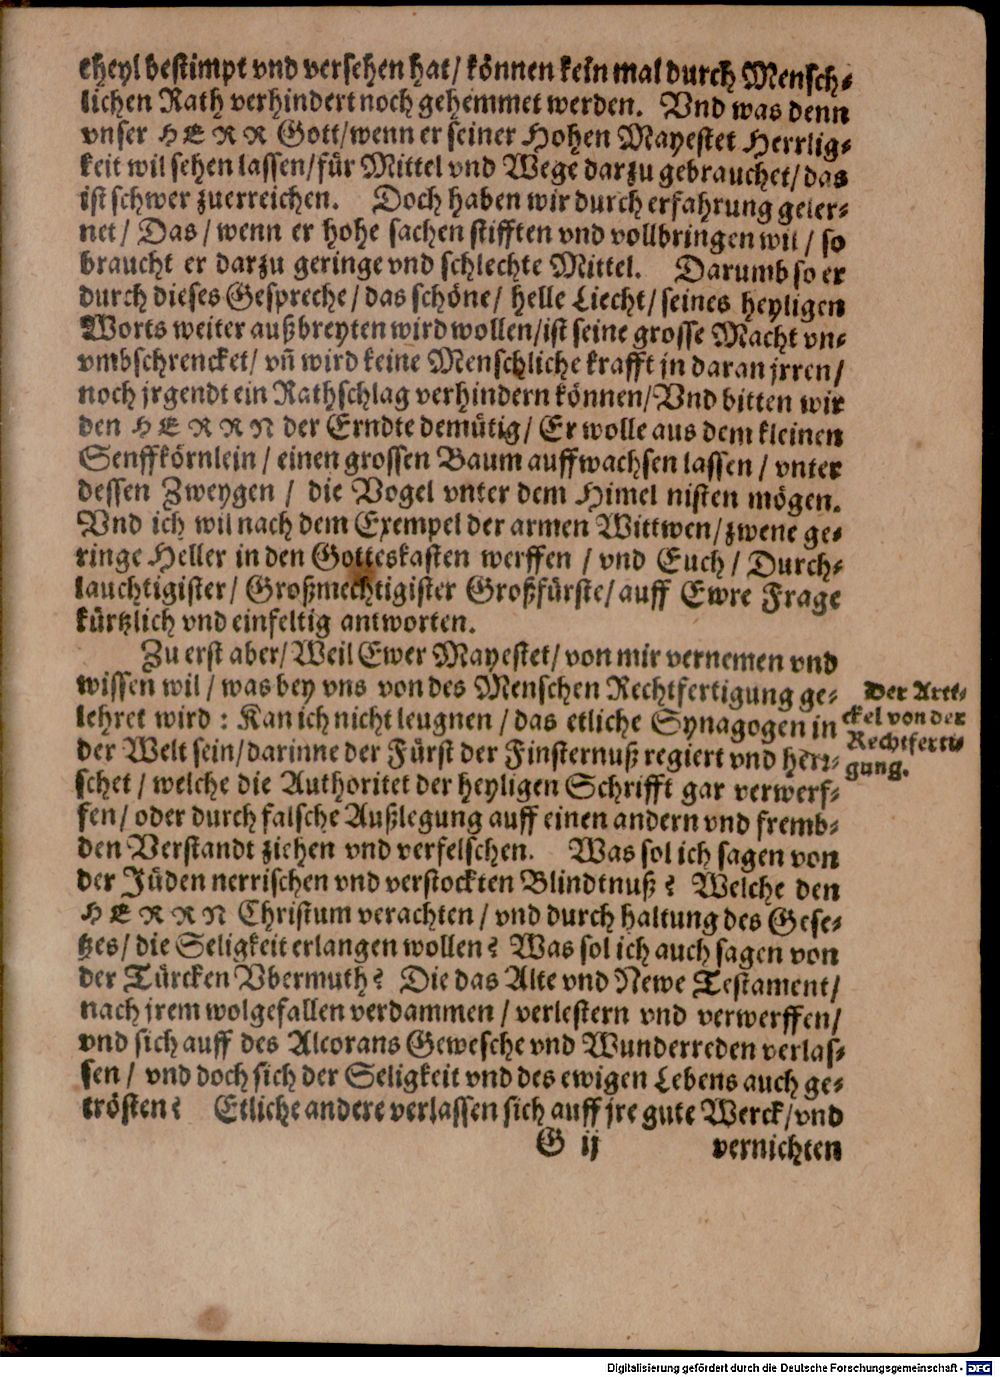 theyl bestimpt vnd versehen hat/ können kein mal durch Mensch-
lichen Rath verhindert noch gehemmet werden. Vnd was denn
vnser HERR Gott/wenn er seiner Hohen Mayestet Herrlig-
keit wil sehen lassen/für Mittel vnd Wege darzu gebrauchet/das
ist schwer zuerreichen. Doch haben wir durch erfahrung geler-
net/ Das/ wenn er hohe sachen stifften vnd vollbringen wil/ so
braucht er darzu geringe vnd schlechte Mittel. Darumb so er
durch dieses Gespreche/ das schöne/ helle Liecht/ seines heyligen
Worts weiter außbreyten wird wollen/ist seine grosse Macht vn-
vmbschrencket/ vñ wird keine Menschliche krafft jn daran jrren/
noch jrgendt ein Rathschlag verhindern können/ Vnd bitten wir
den HERRN der Erndte demütig/ Er wolle aus dem kleinen
Senffkörnlein/ einen grossen Baum auffwachsen lassen/ vnter
dessen Zweygen/ die Vogel vnter dem Himel nisten mögen.
Vnd ich wil nach dem Exempel der armen Wittwen/ zwene ge-
ringe Heller in den Gotteskasten werffen/ vnd Euch/ Durch-
lauchtigister/ Großmechtigister Großfürste/ auff Ewre Frage
kürtzlich vnd einfeltig antworten.
Zu erst aber/ Weil Ewer Mayestet/ von mir vernemen vnd
wissen wil/ was bey vns von des Menschen Rechtfertigung ge-
lehret wird: Kan ich nicht leugnen/ das etliche Synagogen in
der Welt sein/ darinne der Fürst der Finsternuß regiert vnd herr-
schet/ welche die Authoritet der heyligen Schrifft gar verwerf-
fen/ oder durch falsche Außlegung auff einen andern vnd fremb-
den Verstandt ziehen vnd verfelschen. Was sol ich sagen von
der Jüden nerrischen vnd verstockten Blindtnuß? Welche den
HERRN Christum verachten/ vnd durch haltung des Gese-
tzes/ die Seligkeit erlangen wollen? Was sol ich auch sagen von
der Türcken Vbermuth? Die das Alte vnd Newe Testament/
nach jrem wolgefallen verdammen/ verlestern vnd verwerffen/
vnd sich auff des Alcorans Gewesche vnd Wunderreden verlas-
sen/ vnd doch sich der Seligkeit vnd des ewigen Lebens auch ge-
trösten? Etliche andere verlassen sich auff jre gute Werck/ vnd
G ij vernichten
Der Arti-
ckel von der
Rechtferti-
gung.
Digitalisierung gefördert durch die Deutsche Forschungsgemeinschaft - DFG